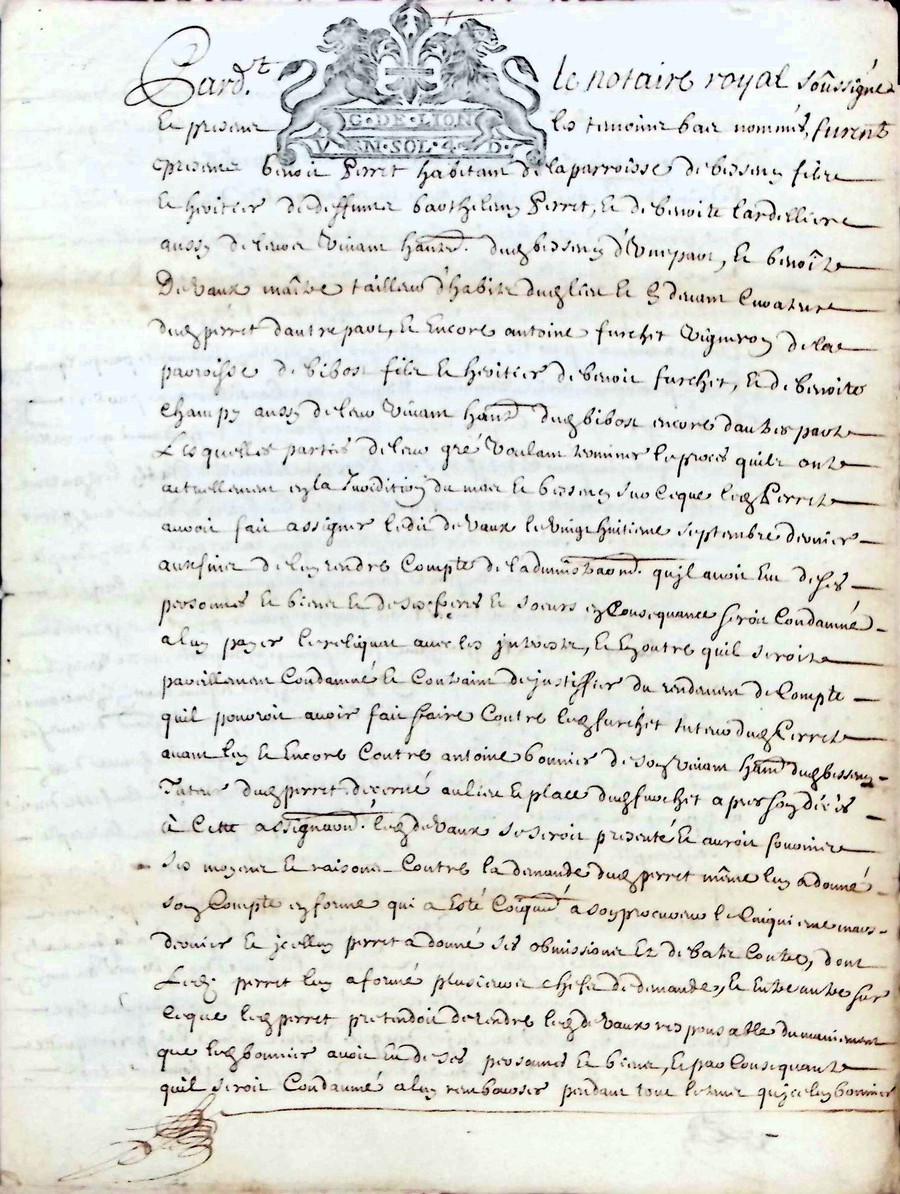 Pard.t le notaire royal soussigné
Et presens les temoins bas nommés, furent
G.DE LION
V N.SOL.4.D.
presens benoit Perret habitant de la parroisse de bessenay filz
Et heritier de deffuns barthelemy Perret, et de benoite lardelliere
aussy de leur vivant hants. dud bessenay d'une part, Et benoît
Devaux maître tailleur d'habits dud lieu Et cy devant curateur
dud perret dautre part, Et Encore antoine furchet vigneron de la
parroisse de bibost filz Et heritier de benoit furchet, Et de benoite
Champy aussy de leur vivant hants dud bibost encore dautre part
Lesquelles parties de leur gré voulant terminer le proces quils ont
actuellement en la Juridiction du mas Et bessenay sur ce que led Perret
auroit fait assigner ledit devaux le vingt huitieme septembre dernier
aux fins de luy rendre Compte de l'administraon. qu'il avoit Eu de ses
personnes Et biens Et de ses freres Et soeurs en Consequance seroit Condamné
a luy payer le reliquat avec les jnterests, Et En outre quil seroit
pareillement Condamné Et Contraint de justiffier du rendement de Compte
quil pouvoit avoir fait faire Contre led furchet tuteur dud Perret
avant luy Et Encore Contre antoine bonnier de son vivant hant dud bessenay
Tuteur dud perret decerné au lieu Et place dud furchet apres son décès
à Cette assignaon. led devaux se seroit presenté Et auroit fourni
ses moyens Et raisons Contre la demande dud perret même luy a donné
son Compte en forme qui a Esté Coiqué a son procureur le Cinquieme mars
dernier Et jcelluy perret a donné ses obmissions Et debats Contre, dont
Led. perret luy a formé plusieurs chefs de demande, Et Entre autre sur
ce que led perret pretendoit de rendre led devaux responsable du maniement
que led bonnier avoit Eu de ses personnes Et biens, Et par Consequant
quil seroit Condamné a luy rembourser pendant tout le tems que jceluy bonnier